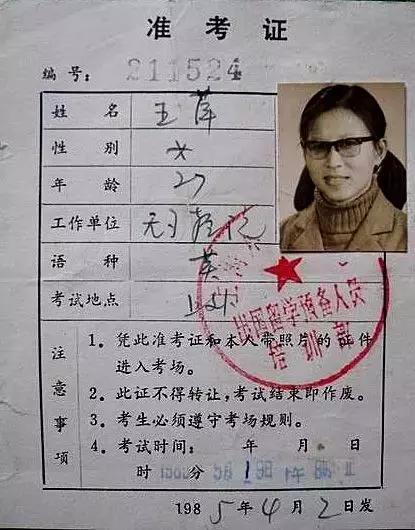 准考证
编号： 211524
姓名 王萍
性别 女
年龄 27
工作单位
语种 英
考试地点
出国留学预备人员
培训部
注意事项
1. 凭此准考证和本人带照片的证件
进入考场。
2. 此证不得转让，考试结束即作废。
3. 考生必须遵守考场规则。
4. 考试时间： 年 月 日
时 分
1985年4月2日发